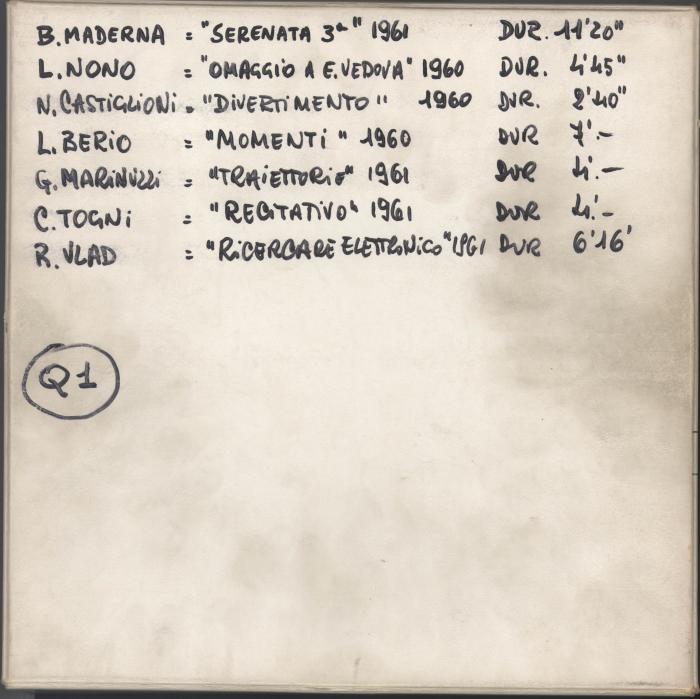 B. MADERNA = "SERENATA 3ª" 1961 DUR. 11'20"
L. NONO = "OMAGGIO A E. VEDOVA" 1960 DUR. 4'45"
N. CASTIGLIONI = "DIVERTIMENTO" 1960 DUR. 2'40"
L. BERIO = "MOMENTI" 1960 DUR 7'.-
G. MARINUZZI = "TRAIETTORIE" 1961 DUR 4'.-
C. TOGNI = "RECITATIVO" 1961 DUR 4'.-
R. VLAD = "RICERCARE ELETTRONICO" 1961 DUR 6'16'
Q1